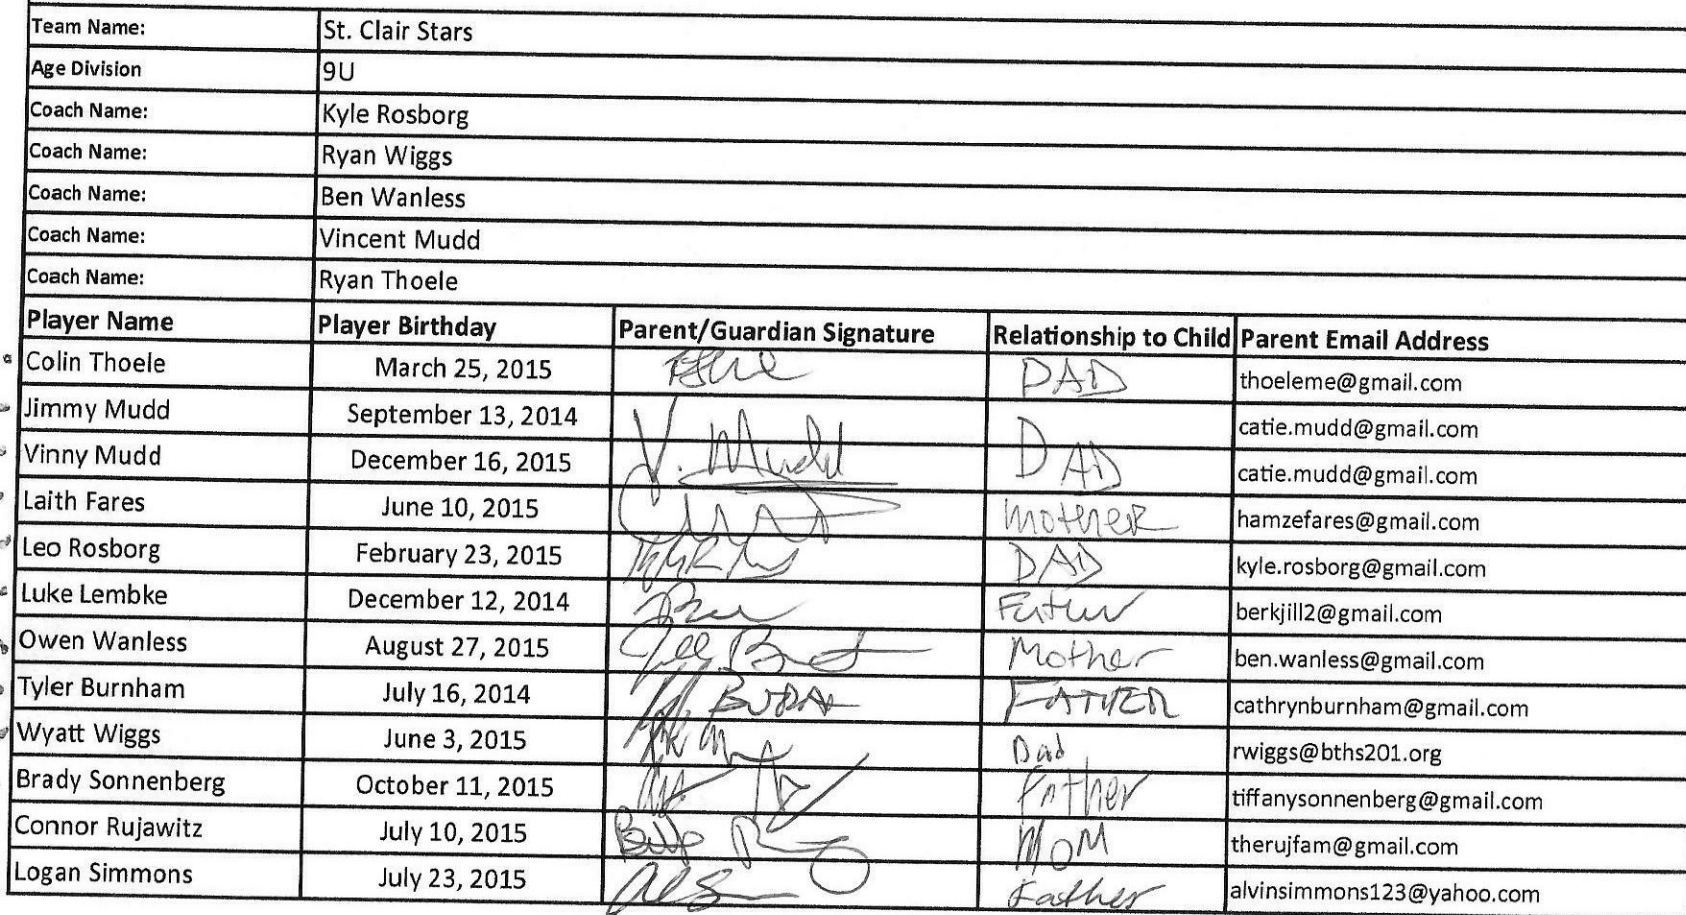 Team Name: St. Clair Stars
Age Division 9U
Coach Name: Kyle Rosborg
Coach Name: Ryan Wiggs
Coach Name: Ben Wanless
Coach Name: Vincent Mudd
Coach Name: Ryan Thoele
Player Name Player Birthday Parent/Guardian Signature Relationship to Child Parent Email Address
Colin Thoele March 25, 2015 DAD thoeleme@gmail.com
Jimmy Mudd September 13, 2014 catie.mudd@gmail.com
Vinny Mudd December 16, 2015 V. Mudd DAD catie.mudd@gmail.com
Laith Fares June 10, 2015 mother hamzefares@gmail.com
Leo Rosborg February 23, 2015 DAD kyle.rosborg@gmail.com
Luke Lembke December 12, 2014 Father berkjill2@gmail.com
Owen Wanless August 27, 2015 Mother ben.wanless@gmail.com
Tyler Burnham July 16, 2014 FATHER cathrynburnham@gmail.com
Wyatt Wiggs June 3, 2015 Dad rwiggs@bths201.org
Brady Sonnenberg October 11, 2015 Father tiffanysonnenberg@gmail.com
Connor Rujawitz July 10, 2015 MOM therujfam@gmail.com
Logan Simmons July 23, 2015 Father alvinsimmons123@yahoo.com